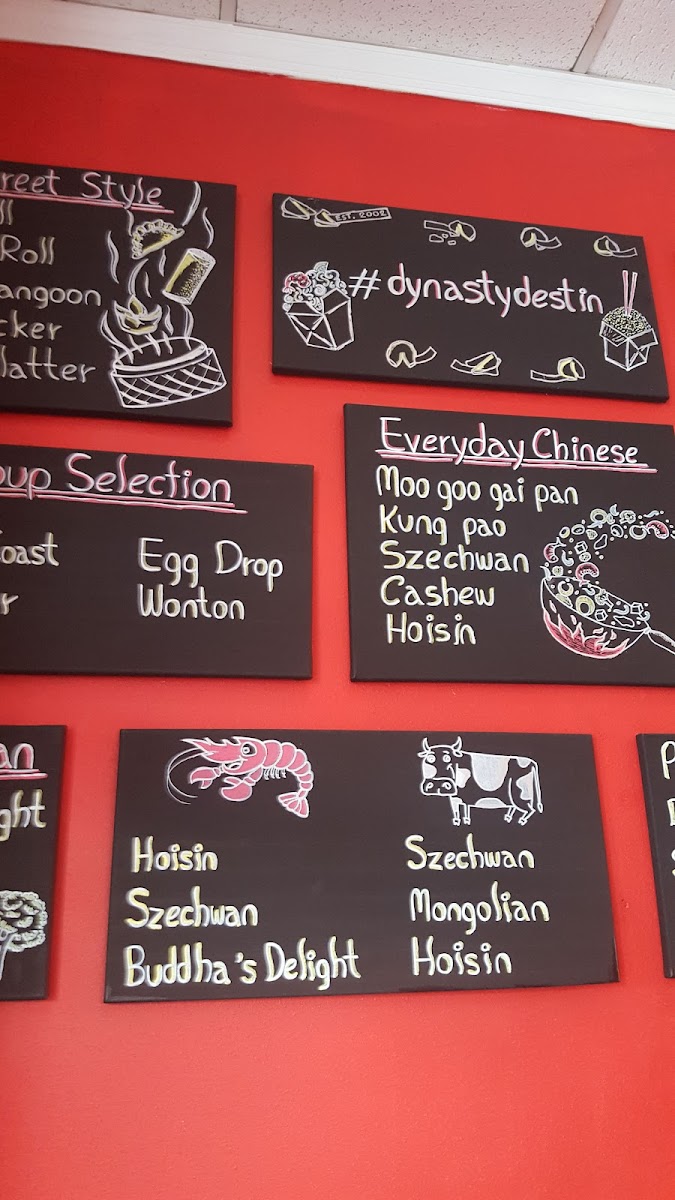 reet Style
ll
Roll
angoon
cker
latter
EST. 2002
#dynastydestin
oup Selection
oast
r
Egg Drop
Wonton
Everyday Chinese
Moo goo gai pan
Kung pao
Szechwan
Cashew
Hoisin
an
ght
Hoisin
Szechwan
Buddha's Delight
Szechwan
Mongolian
Hoisin
P